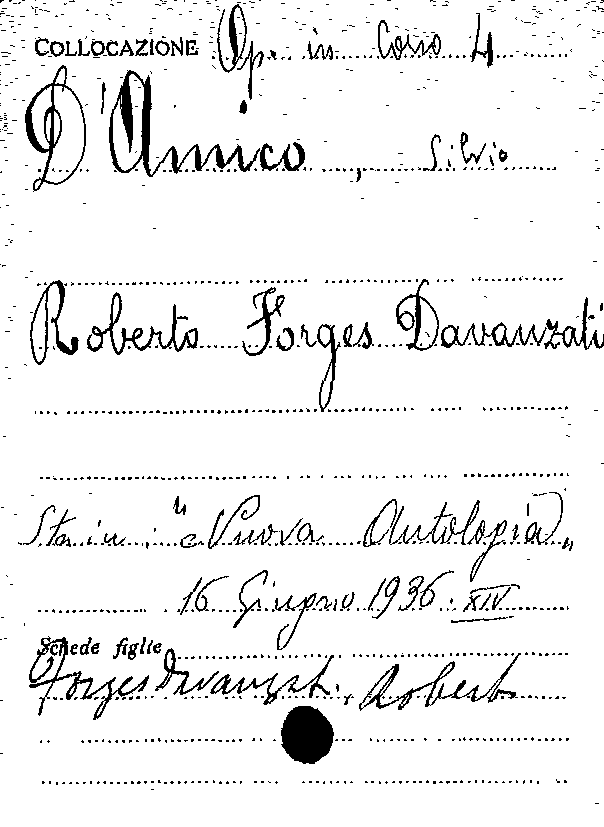 COLLOCAZIONE Op. in Corso 4
D'Amico, Silvio
Roberto Forges Davanzati
Sta in: "Nuova Antologia"
16 Giugno 1936. XIV
Schede figlie
Forges Davanzati, Roberto